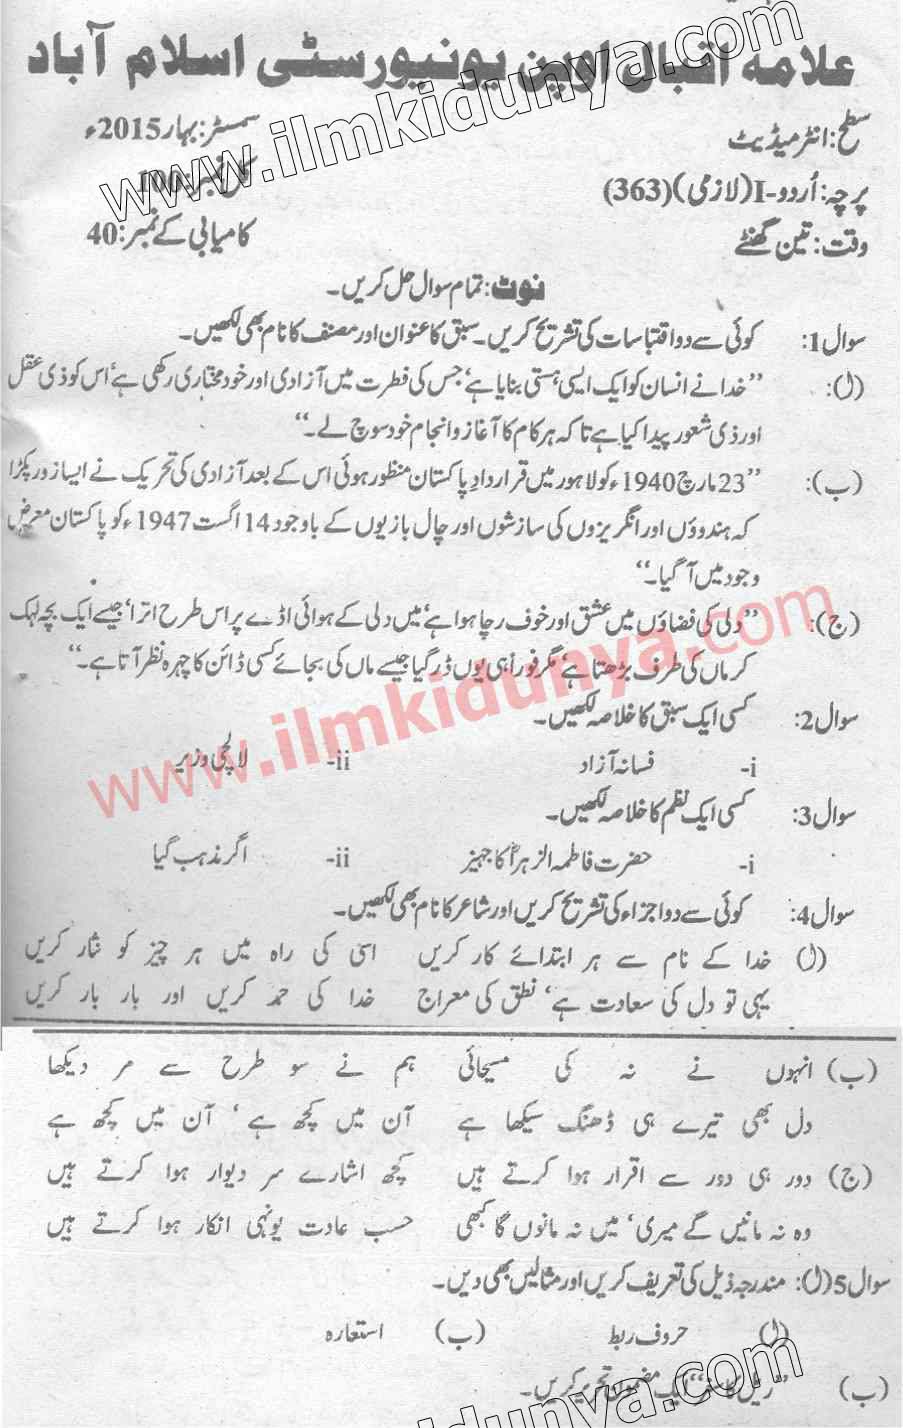 علامہ اقبال اوپن یونیورسٹی اسلام آباد
سطح: انٹرمیڈیٹ سمسٹر: بہار 2015ء
پرچہ: اُردو-I (لازمی) (363) کل نمبر: 100
وقت: تین گھنٹے کامیابی کے نمبر: 40
نوٹ: تمام سوال حل کریں۔
سوال 1: کوئی سے دو اقتباسات کی تشریح کریں۔ سبق کا عنوان اور مصنف کا نام بھی لکھیں۔
(ا): ”خدا نے انسان کو ایک ایسی ہستی بنایا ہے، جس کی فطرت میں آزادی اور خود مختاری رکھی ہے، اس کو ذی عقل
اور ذی شعور پیدا کیا ہے تاکہ ہر کام کا آغاز و انجام خود سوچ لے۔“
(ب): ”23 مارچ 1940ء کو لاہور میں قراردادِ پاکستان منظور ہوئی اس کے بعد آزادی کی تحریک نے ایسا زور پکڑا
کہ ہندوؤں اور انگریزوں کی سازشوں اور چال بازیوں کے باوجود 14 اگست 1947ء کو پاکستان معرض
وجود میں آ گیا۔“
(ج): ”دلی کی فضاؤں میں عشق اور خوف رچا ہوا ہے، میں دلی کے ہوائی اڈے پر اس طرح اترا، جیسے ایک بچہ لہک
کر ماں کی طرف بڑھتا ہے، مگر فوراً ہی یوں ڈر گیا جیسے ماں کی بجائے کسی ڈائن کا چہرہ نظر آتا ہے۔“
سوال 2: کسی ایک سبق کا خلاصہ لکھیں۔
i- فسانہ آزاد ii- لالچی وزیر
سوال 3: کسی ایک نظم کا خلاصہ لکھیں۔
i- حضرت فاطمۃ الزہراؓ کا جہیز ii- اگر مذہب گیا
سوال 4: کوئی سے دو اجزاء کی تشریح کریں اور شاعر کا نام بھی لکھیں۔
(ا) خدا کے نام سے ہر ابتدائے کار کریں اسی کی راہ میں ہر چیز کو نثار کریں
یہی تو دل کی سعادت ہے، نطق کی معراج خدا کی حمد کریں اور بار بار کریں
(ب) انہوں نے نہ کی مسیحائی ہم نے سو طرح سے مر دیکھا
دل بھی تیرے ہی ڈھنگ سیکھا ہے آن میں کچھ ہے، آن میں کچھ ہے
(ج) دور ہی دور سے اقرار ہوا کرتے ہیں کچھ اشارے سر دیوار ہوا کرتے ہیں
وہ نہ مانیں گے میری، میں نہ مانوں گا کبھی حسب عادت یونہی انکار ہوا کرتے ہیں
سوال 5 (ا): مندرجہ ذیل کی تعریف کریں اور مثالیں بھی دیں۔
(ا) حروف ربط (ب) استعارہ
(ب) ”ریل کا سفر“ ایک مضمون تحریر کریں۔
www.ilmkidunya.com
www.ilmkidunya.com
www.ilmkidunya.com